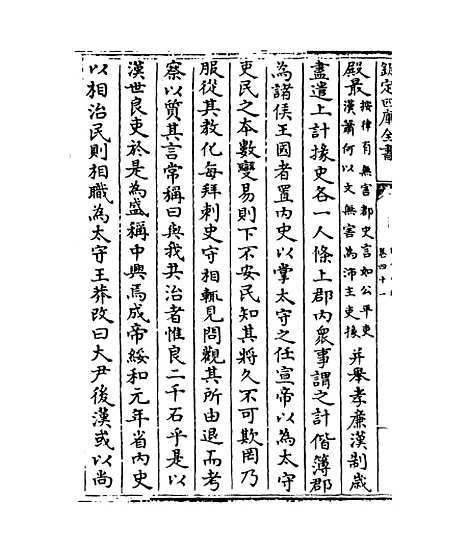 欽定四庫全書
卷四十一
殿最按律有無害都吏言如公平吏漢蕭何以文無害為沛主吏掾并舉孝廉漢制歳
盡遣上計掾史各一人條上郡内衆事謂之計偕簿郡
為諸侯王國者置内史以掌太守之任宣帝以為太守
吏民之本數變易則下不安民知其將久不可欺罔乃
服從其教化每拜刺史守相輒見問觀其所由退而考
察以質其言常稱曰與我共治者惟良二千石乎是以
漢世良吏於是為盛稱中興焉成帝綏和元年省内史
以相治民則相職為太守王莽改曰大尹後漢或以尚